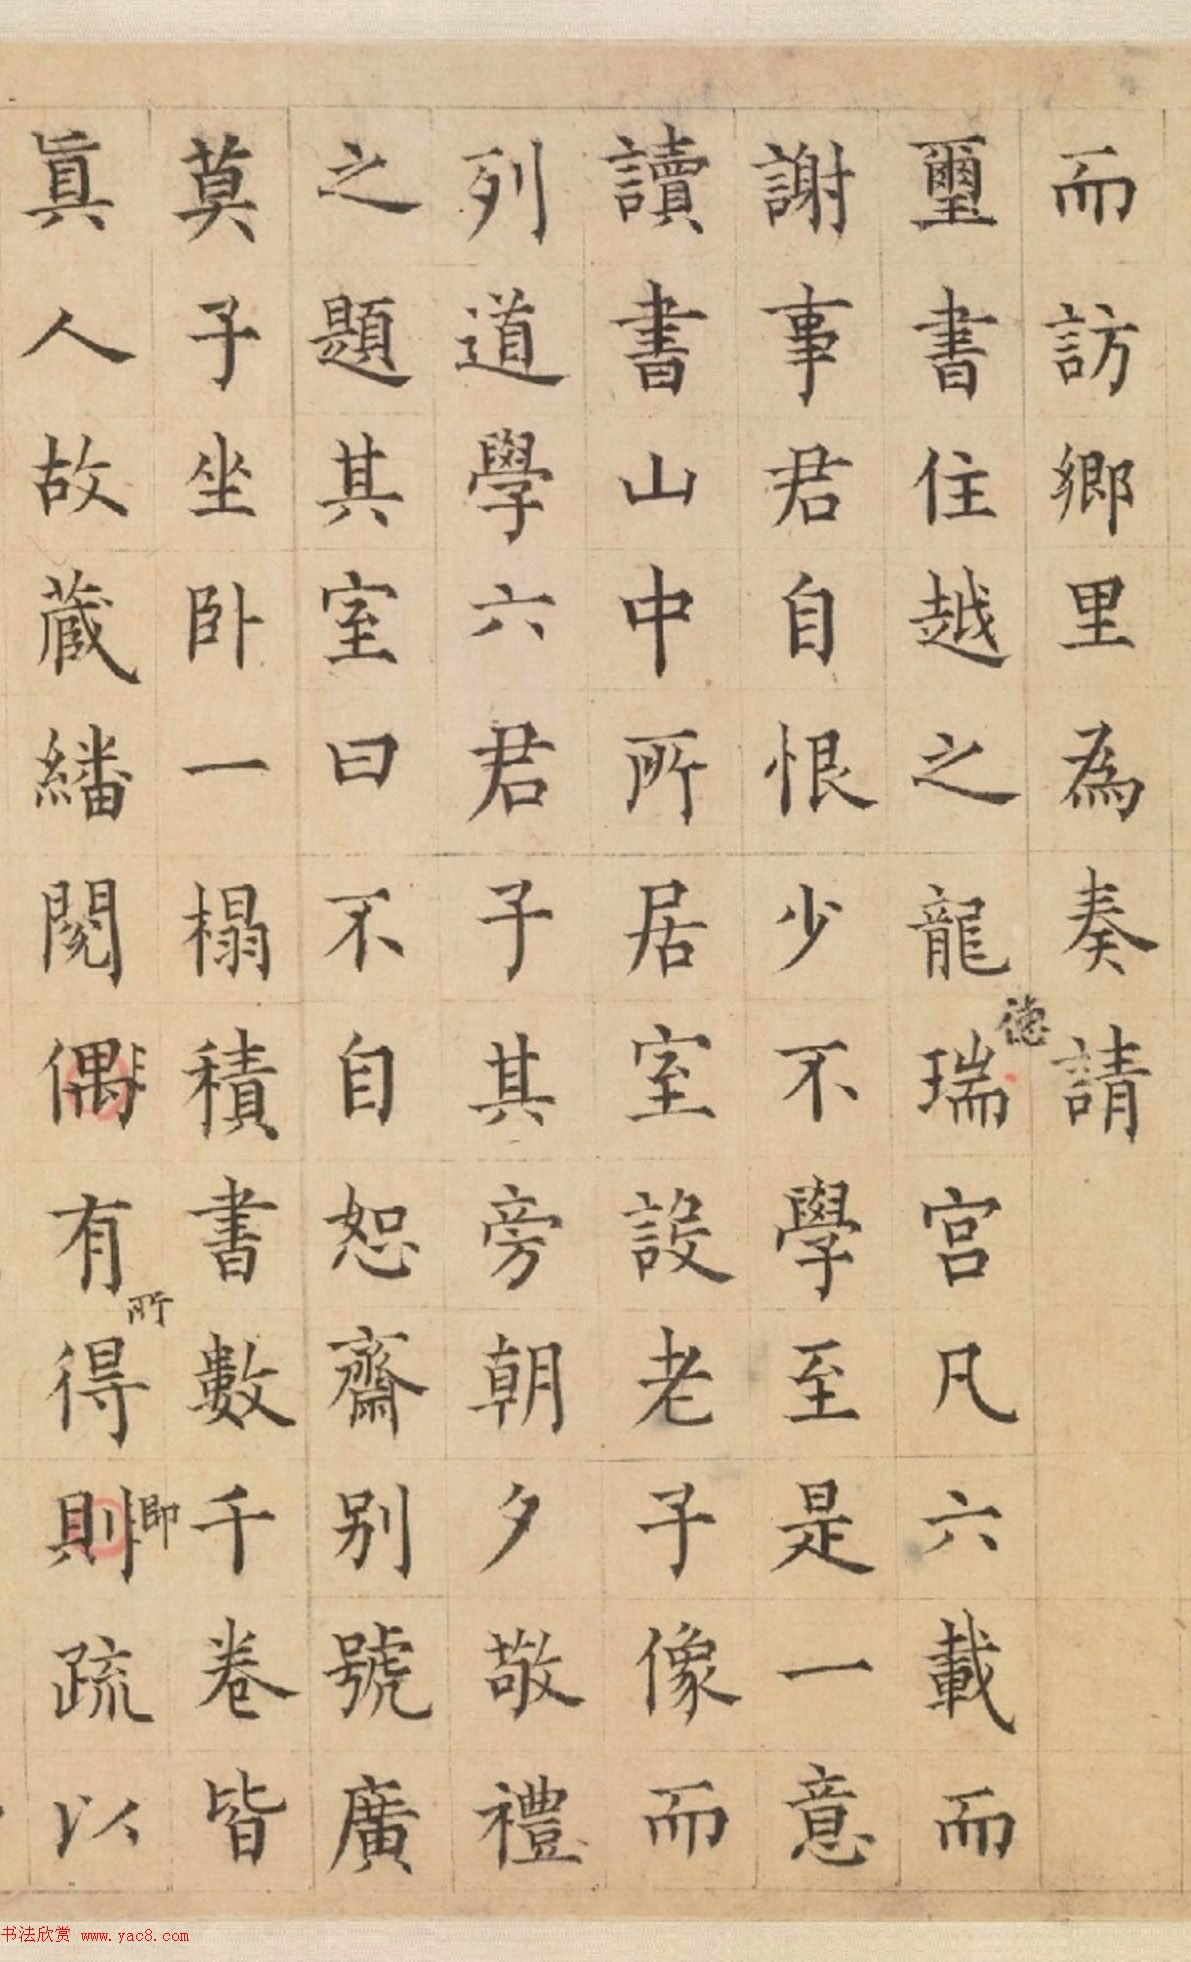 而訪鄉里為奏請
璽書住越之龍瑞宮凡六載而
德
謝事君自恨少不學至是一意
讀書山中所居室設老子像而
列道學六君子其旁朝夕敬禮
之題其室曰不自恕齋別號廣
莫子坐臥一榻積書數千卷皆
所
即
真人故藏繙閱偶有得則疏以
书法欣赏 www.yac8.com